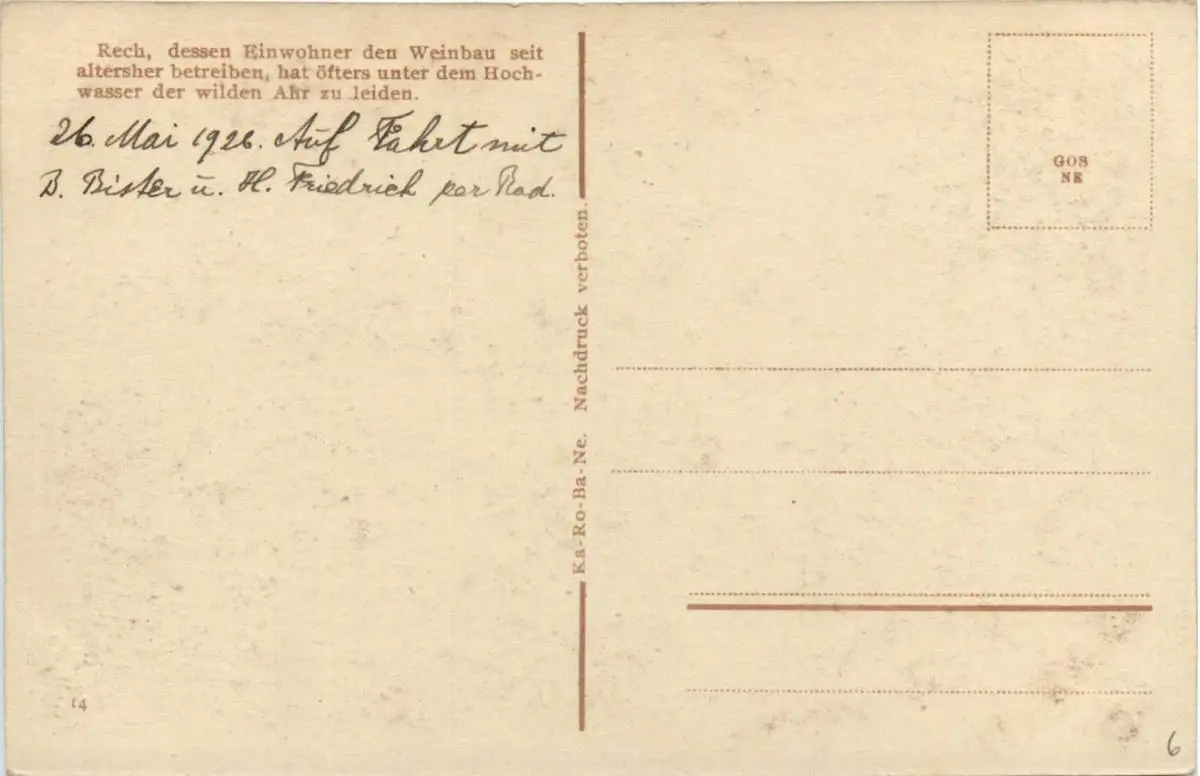 Rech, dessen Einwohner den Weinbau seit
altersher betreiben, hat öfters unter dem Hoch-
wasser der wilden Ahr zu leiden.
26. Mai 1926. Auf Fahrt mit
B. Bister u. H. Friedrich per Rad.
Ka-Ro-Ba-Ne. Nachdruck verboten.
GOS
NE
14
6